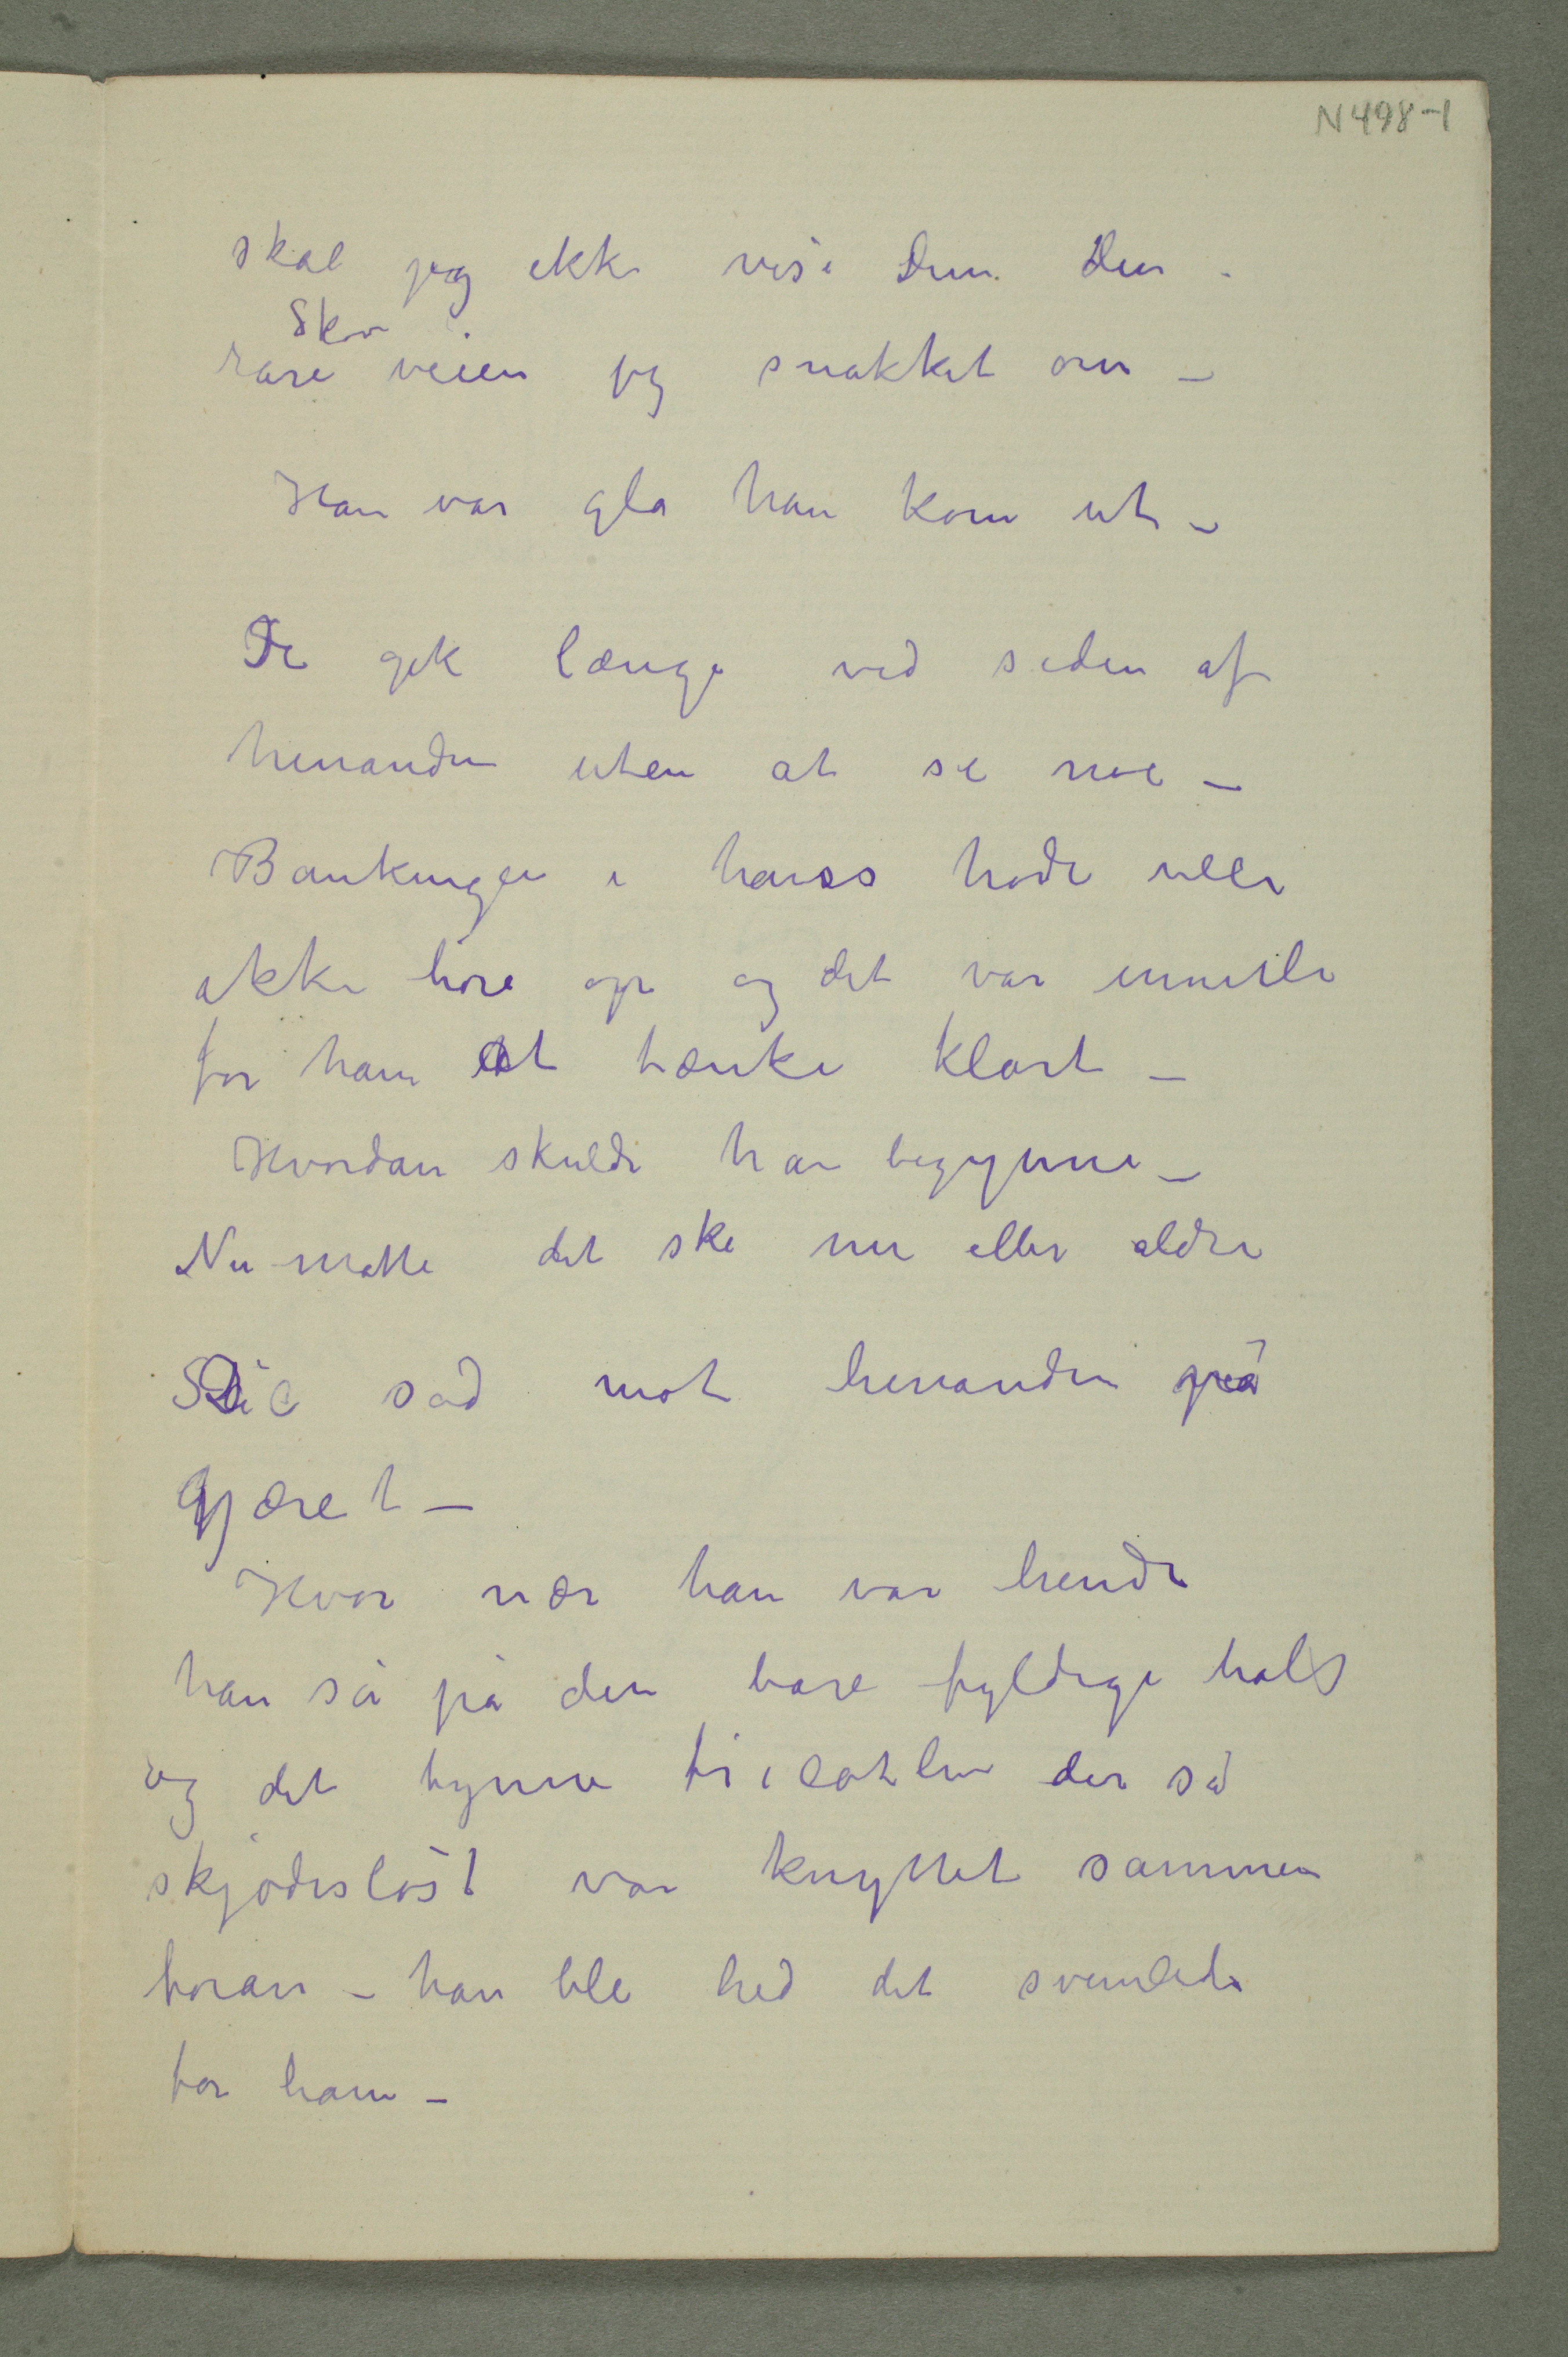 N 498-1
skal jeg ikke vise Dem den
Skov
rare veien jeg snakket om –
Han var gla han kom ut –
De gik længe ved siden af
henanden uten at se noe –
Bankingen i hanss hode ville
ikke höre op og det var umuli
for ham at tænke klart –
Hvordan skulde han begynne –
Nu måtte det ske nu eller aldri
De sad mot henanden på
gjæret –
Hvor nær han var hende
han så på den bare fyldige hals
og det tynne tricotliv der så
skjödeslöst var knyttet sammen
foran – han ble hed det svimlede
for ham –